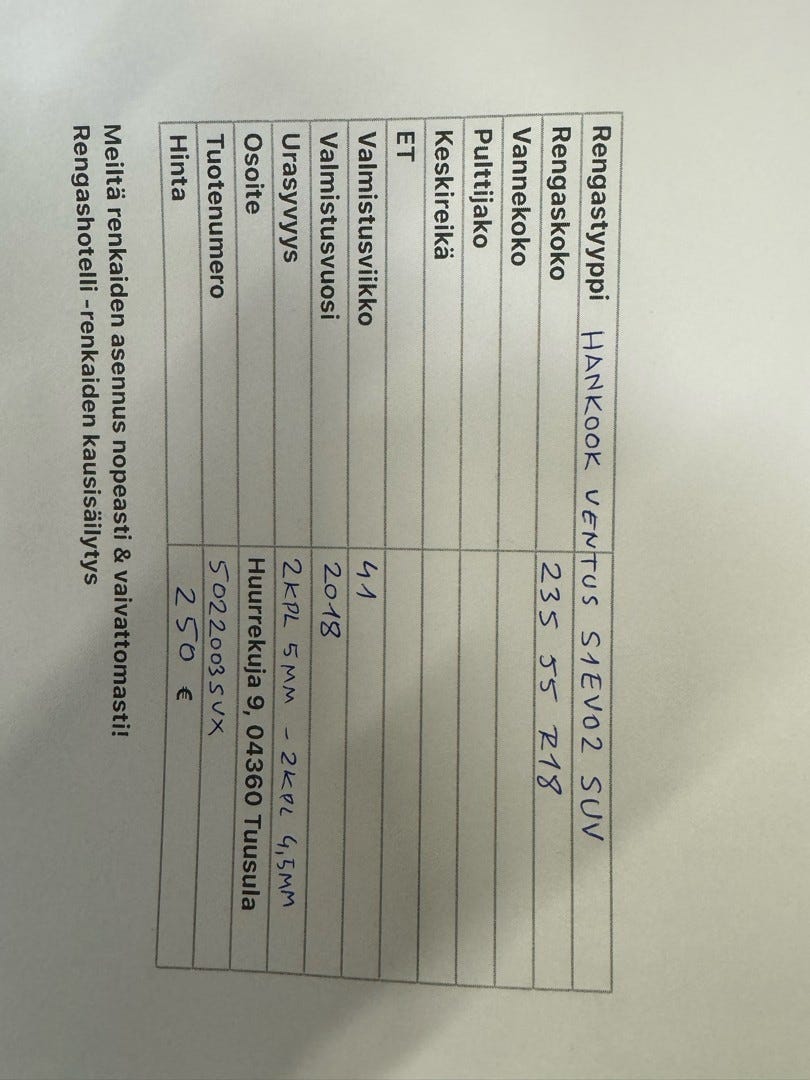 Rengastyyppi HANKOOK VENTUS S1EVO2 SUV
Rengaskoko 235 55 R18
Vannekoko
Pulttijako
Keskireikä
ET
Valmistusviikko 41
Valmistusvuosi 2018
Urasyvyys 2KPL 5MM - 2KPL 4,5MM
Osoite Huurrekuja 9, 04360 Tuusula
Tuotenumero 5022003SVX
Hinta 250 €
Meiltä renkaiden asennus nopeasti & vaivattomasti!
Rengashotelli -renkaiden kausisäilytys